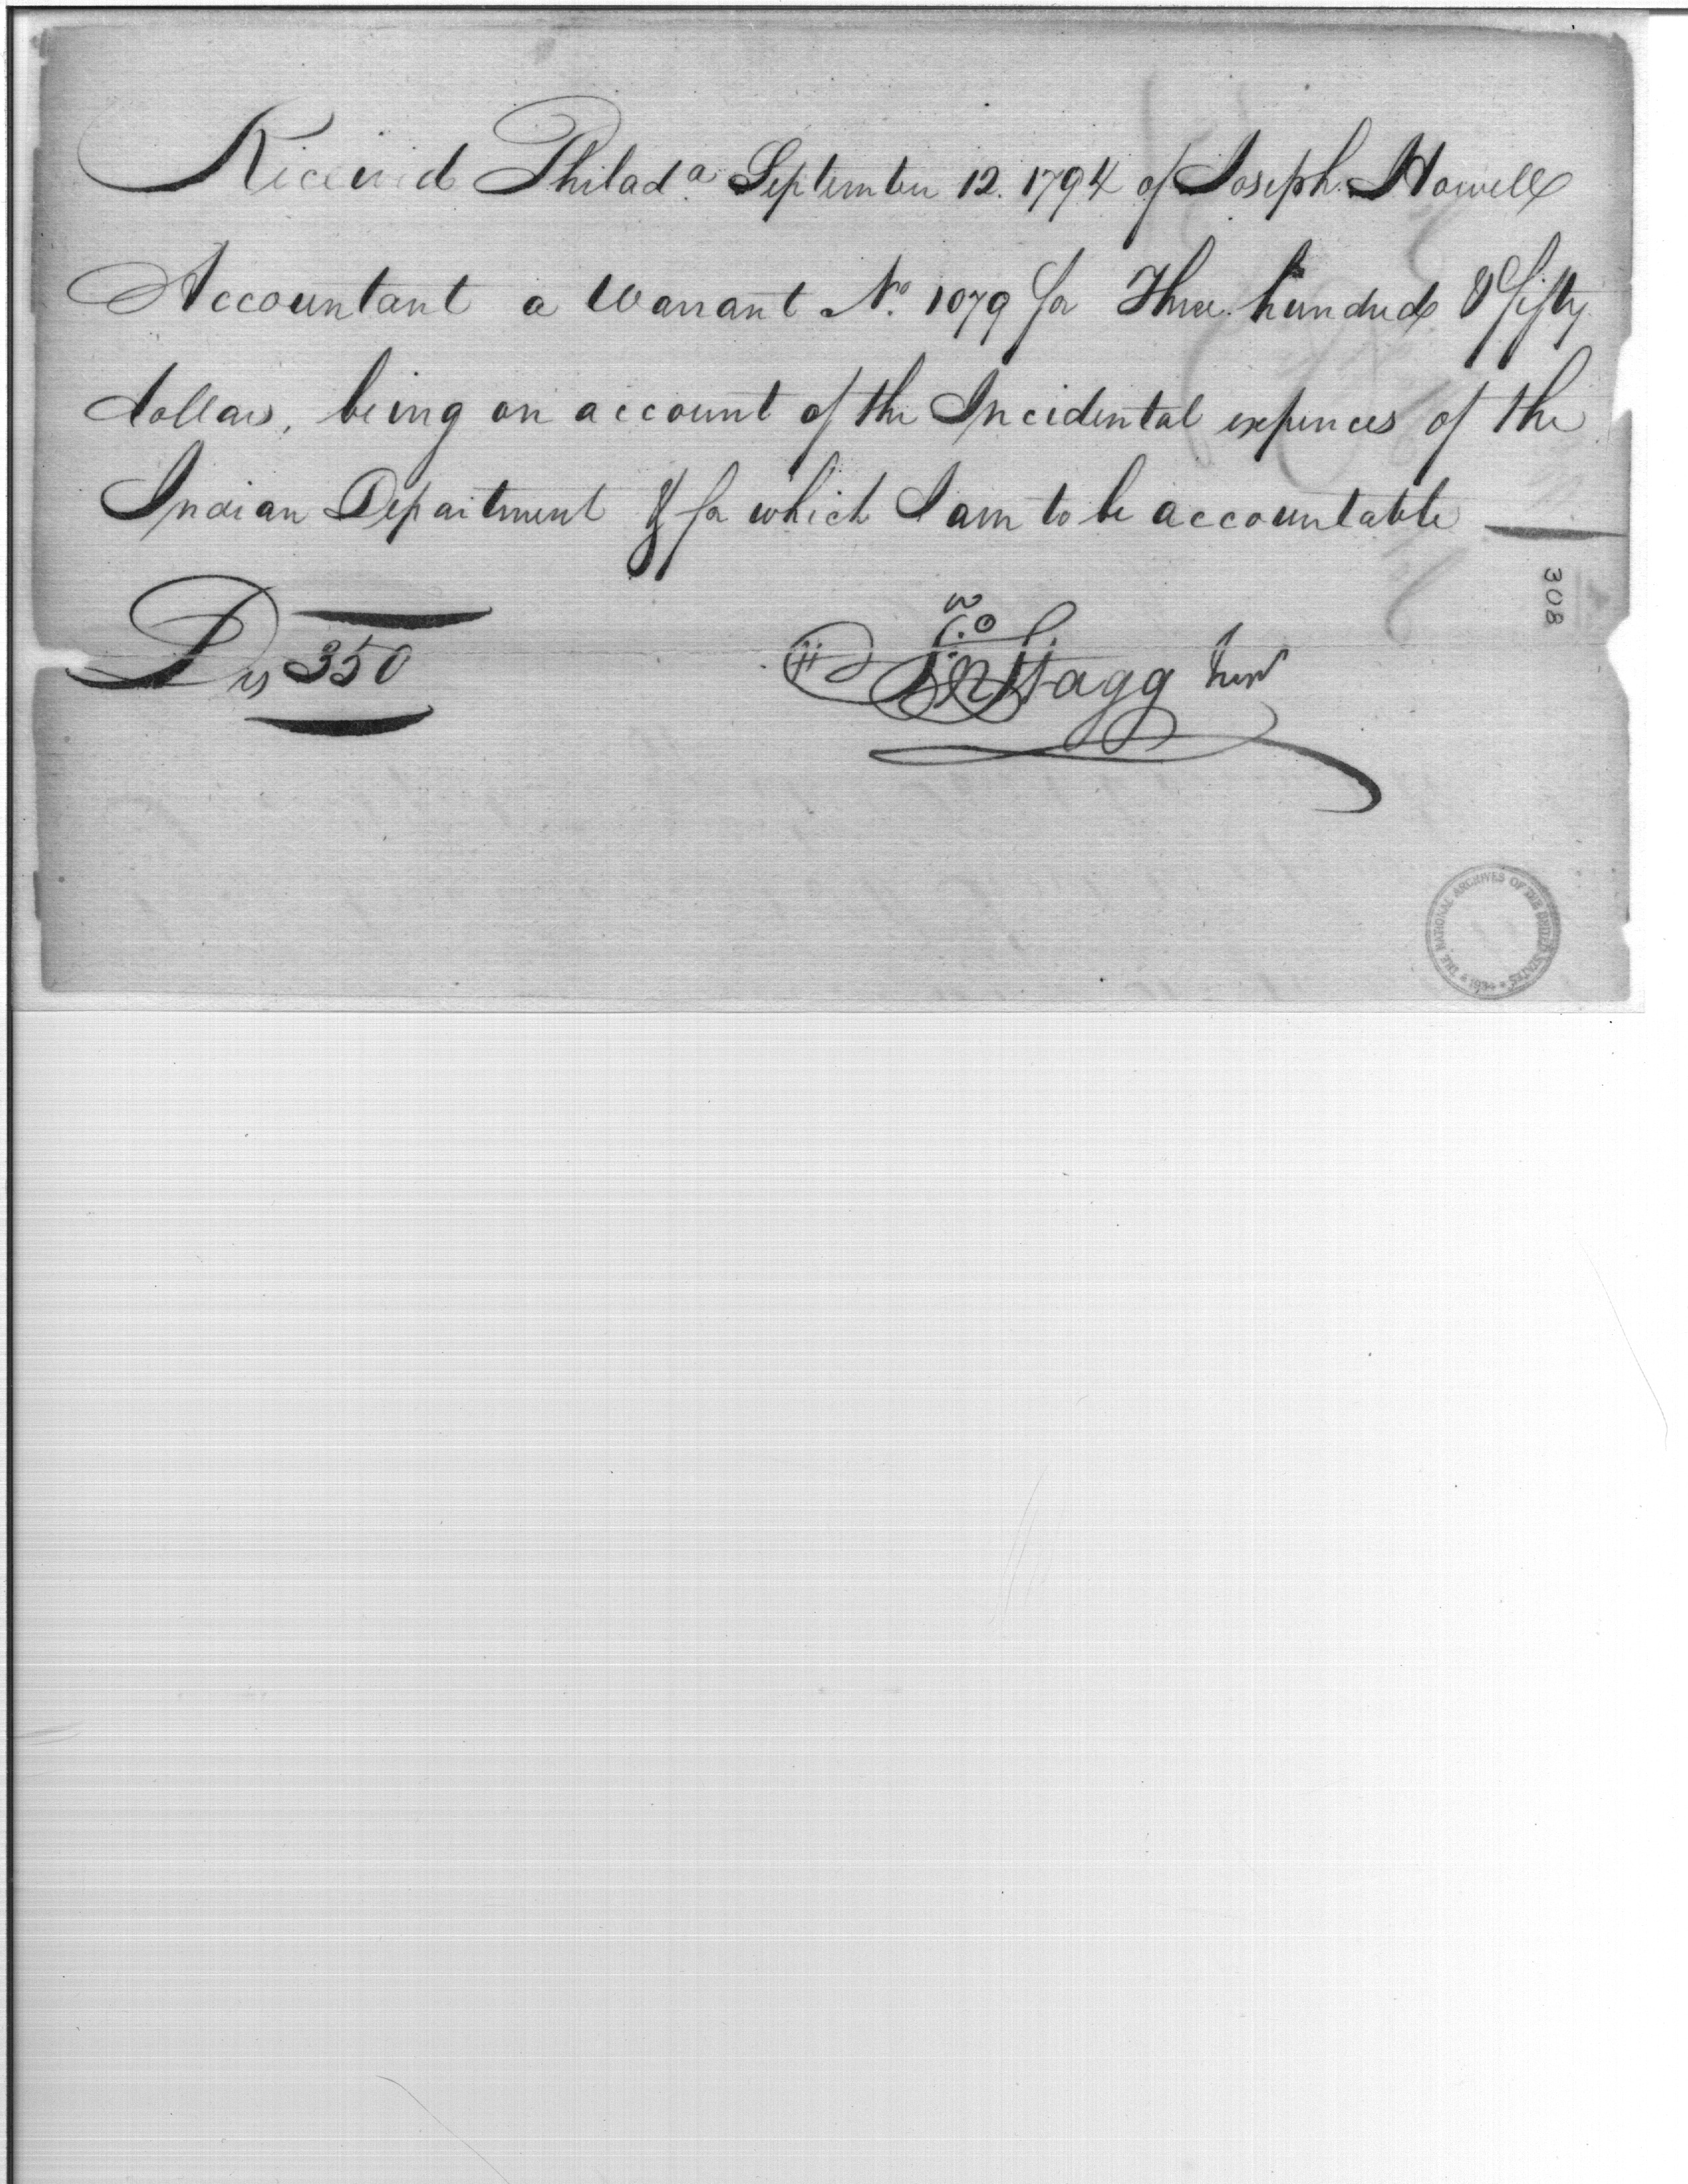 Received Philad.a September 12. 1794 of Joseph Howell
Accountant a Warrant No. 1079 for Three hundred & fifty
dollars, being on account of the Incidental expences of the
Indian Department & for which I am to be accountable
308
Drs 350
Jno Stagg Junr
THE NATIONAL ARCHIVES OF THE UNITED STATES
* 1934 *